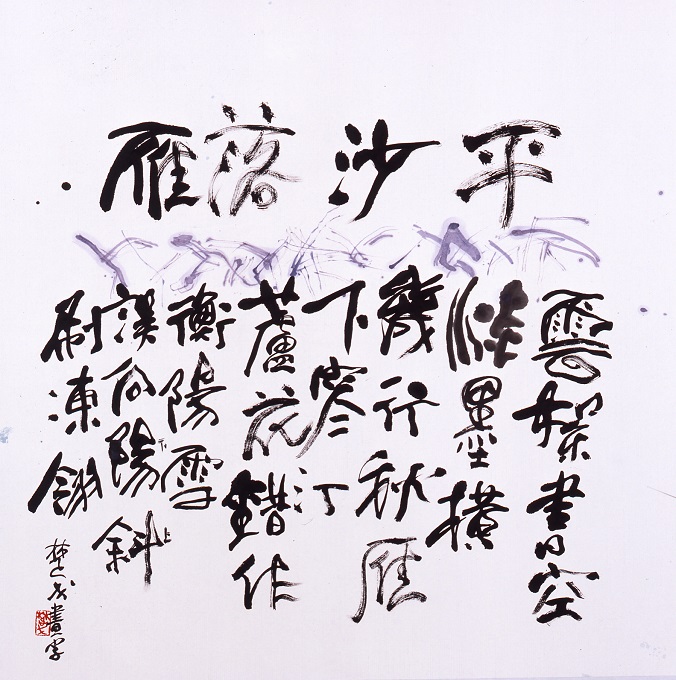 平沙落雁
雲書空
淡墨橫
幾行秋雁
下寒汀
蘆花錯作
衡陽雪
誤向陽斜
刷凍翎
楚戈畫字